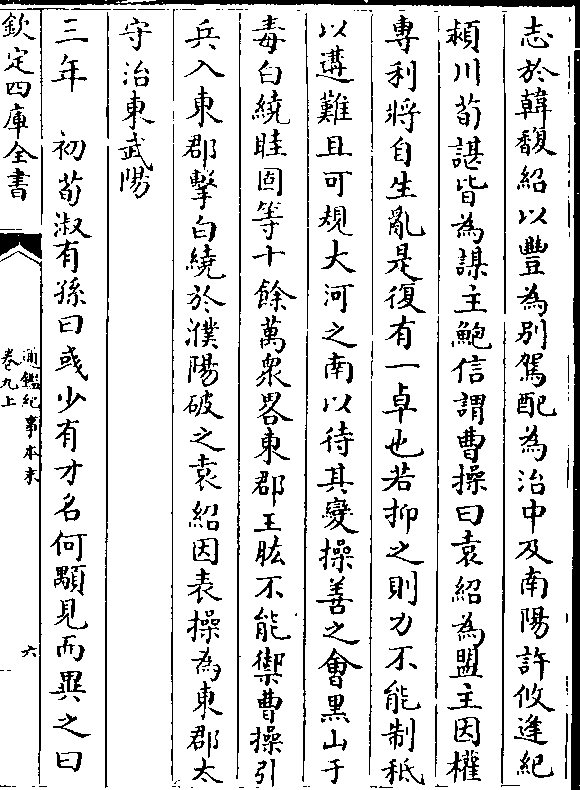 志於韓馥紹以豐為別駕配為治中及南陽許攸逢紀
潁川荀諶皆為謀主鮑信謂曹操曰袁紹為盟主因權
專利將自生亂是復有一卓也若抑之則力不能制秪
以遘難且可規大河之南以待其變操善之會黑山于
毒白繞眭固等十餘萬衆畧東郡王肱不能禦曹操引
兵入東郡擊白繞於濮陽破之袁紹因表操為東郡太
守治東武陽
三年　初荀淑有孫曰彧少有才名何顒見而異之曰
欽定四庫全書
通鑑紀事本末
卷九上
六